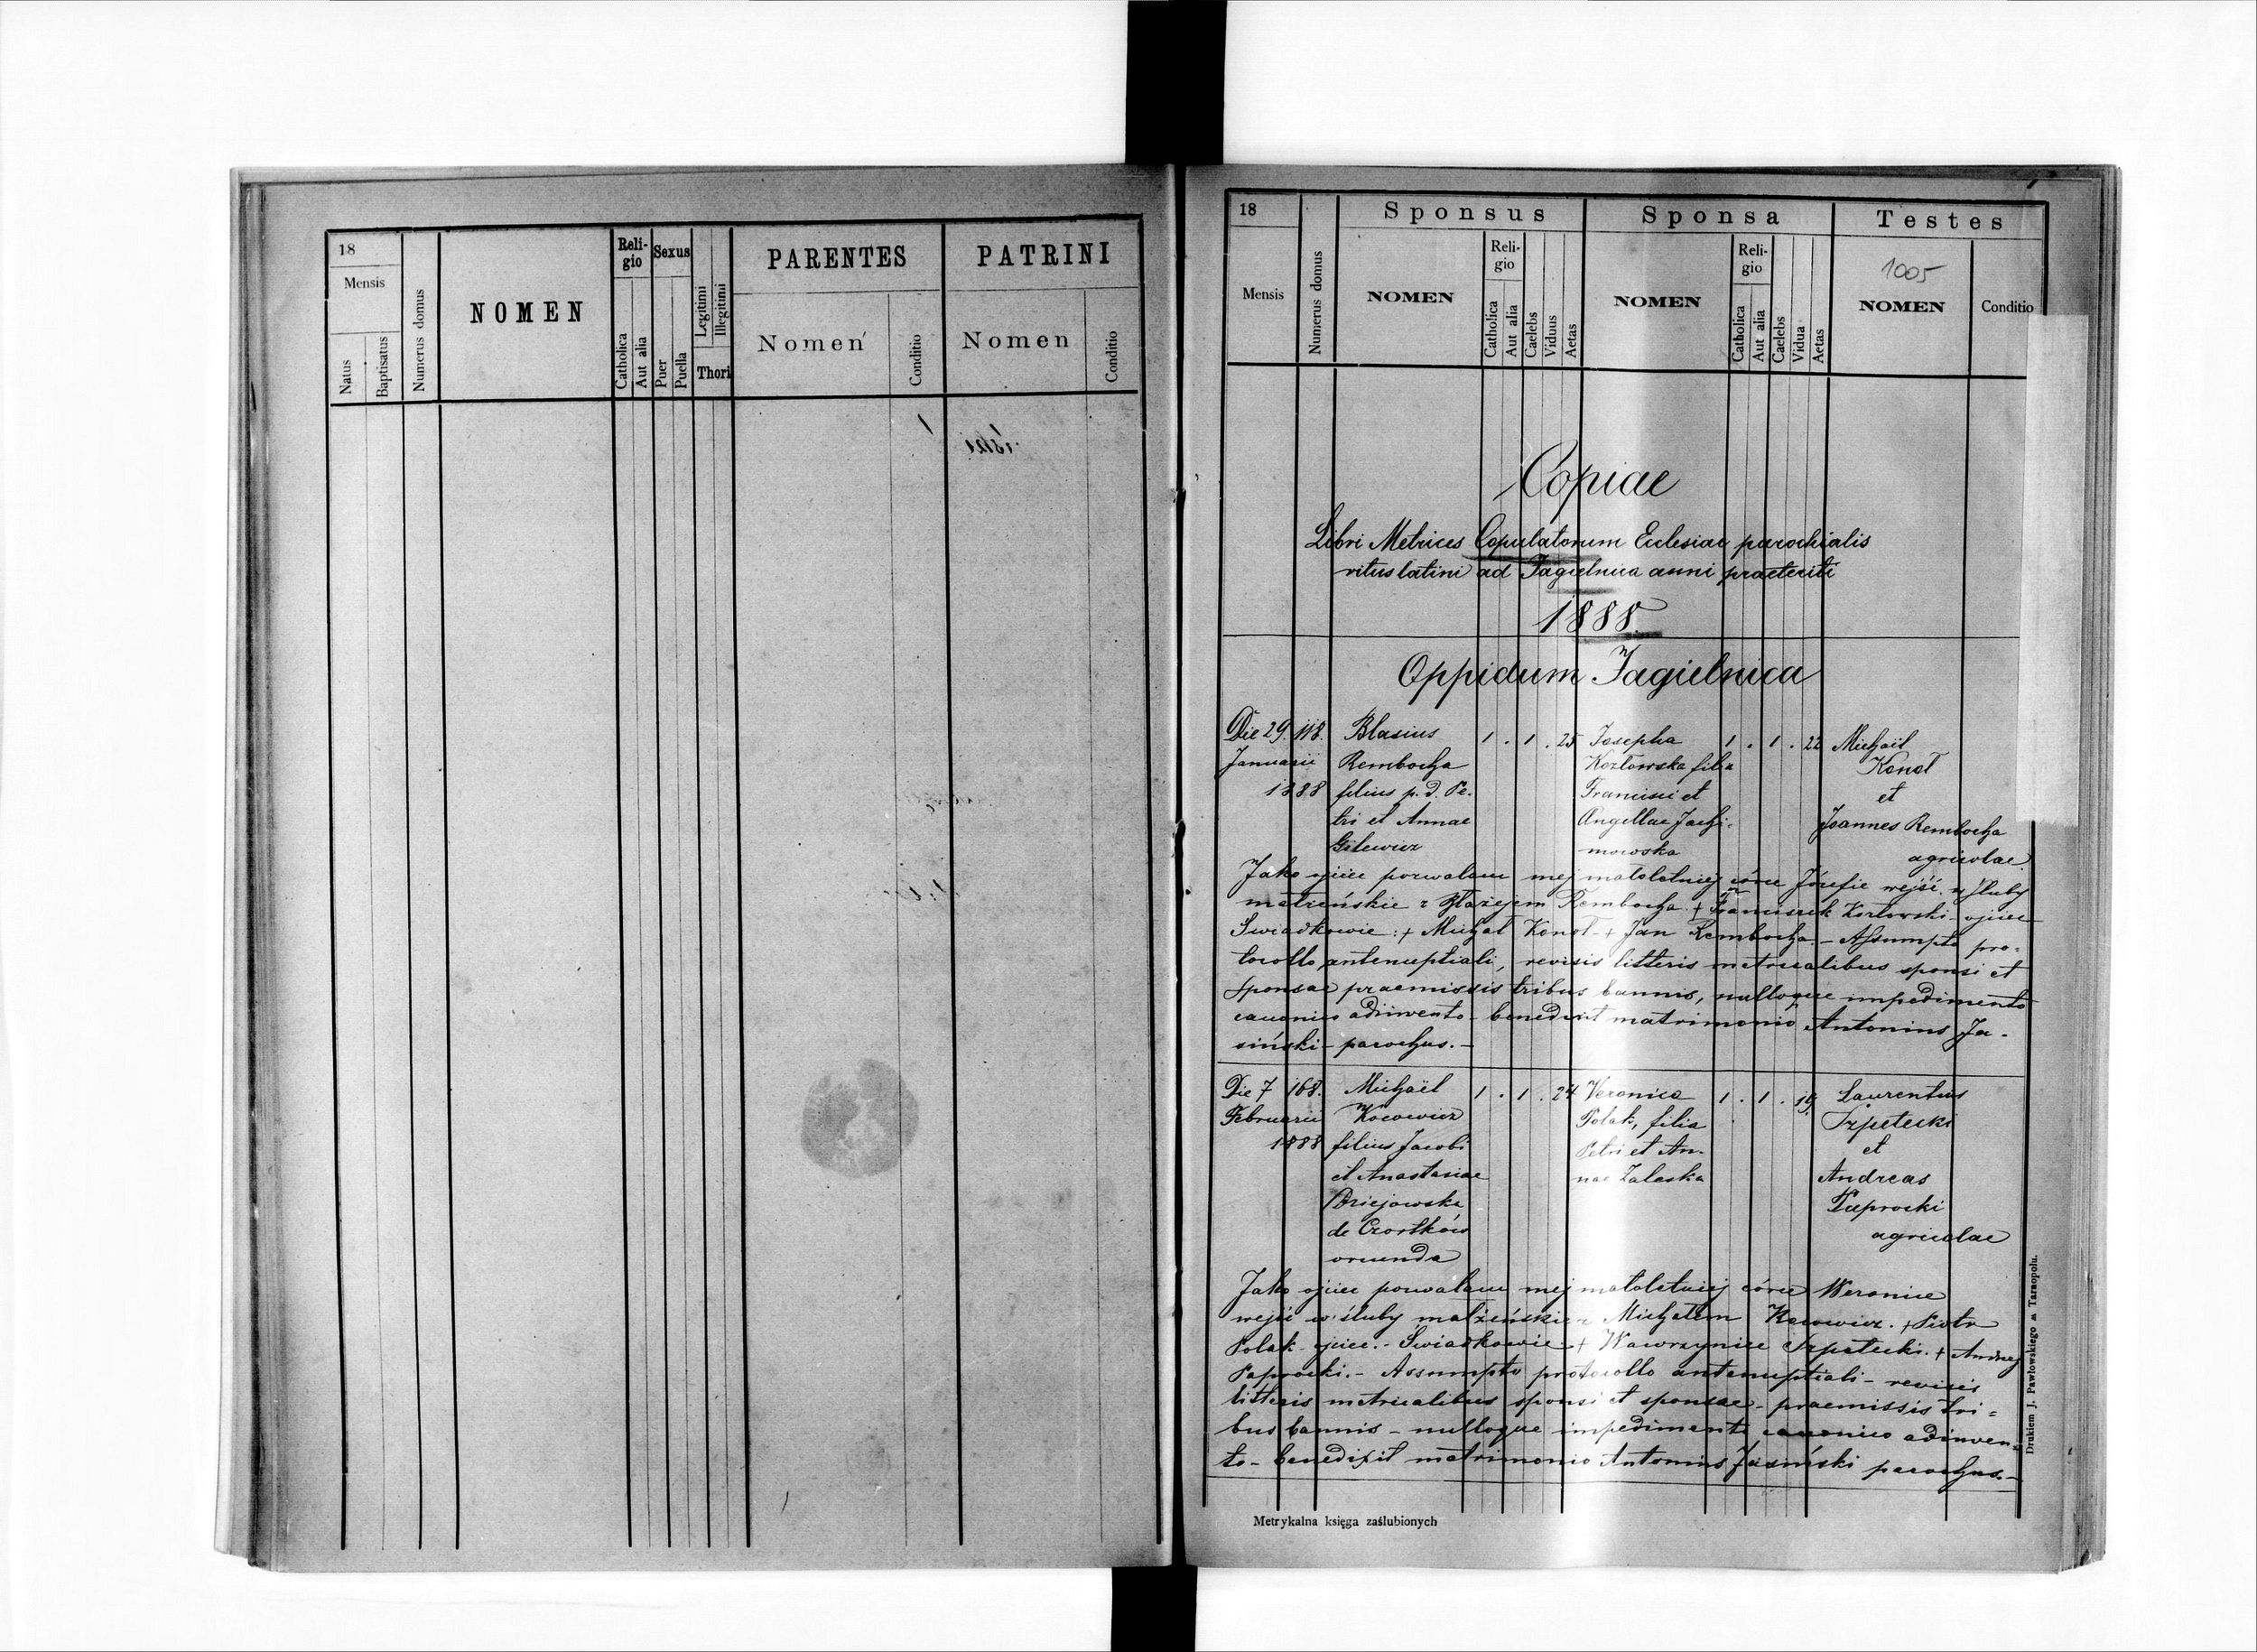 18
Mensis
Natus
Baptisatus
Numerus domus
NOMEN
Reli-
gio
Catholica
Aut alia
Sexus
Puer
Puella
Legitimi
Illegitimi
Thori
PARENTES
Nomen
Conditio
PATRINI
Nomen
Conditio
18
Mensis
Numerus domus
Sponsus
NOMEN
Reli-
gio
Catholica
Aut alia
Caelebs
Viduus
Aetas
Sponsa
NOMEN
Reli-
gio
Catholica
Aut alia
Caelebs
Vidua
Aetas
Testes
1005
NOMEN
Conditio
Copiae
Libri Metrices Copulatorum Ecclesiae parochialis
ritus latini ad Jagielnica anni praeteriti
1888
Oppidum Jagielnica
Die 29. 118. Blasius 1 . 1 . 25 Josepha 1 . 1 . 22 Michaël
Januarii Rembocha Kozlowska filia Konol
1888 filius p. d. Pe- Francisci et et
tri et Annae Angellae Jachi- Joannes Rembocha
Gilewicz mowska agricolae
Jako ojciec pozwalam mej małoletniej córce Józefie wejść w śluby
małżeńskie z Błażejem Rembocha + Franciszek Kozłowski - ojciec
Świadkowie : + Michał Konol - + Jan Rembocha. - Assumpto pro-
tocollo antenuptiali, revisis litteris metricalibus sponsi et
sponsae praemissis tribus bannis, nulloque impedimento
canonico adinvento - benedixit matrimonio Antonius Ja-
siński - parochus. -
Die 7 168. Michaël 1 . 1 . 24 Veronica 1 . 1 . 19 Laurentius
Februarii Kocowicz Polak, filia Szpetecki
1888 filius Jacobi Petri et An- et
et Anastasiae nae Zaleska Andreas
Dziejowska Paprocki
de Czortków agricolae
oriunda
Jako ojciec pozwalam mej małoletniej córce Weronice
wejść w śluby małżeńskie z Michałem Kocowicz. + Piotr
Polak - ojciec. - Świadkowie : + Wawrzyniec Szpetecki. + Andrzej
Paprocki. - Assumpto protocollo antenuptiali - revisis
litteris metricalibus sponsi et sponsae - praemissis tri-
bus bannis - nulloque impedimento canonico adinven-
to - benedixit matrimonio Antonius Jasiński parochus. -
Metrykalna księga zaślubionych
Drukiem J. Pawłowskiego w Tarnopolu.